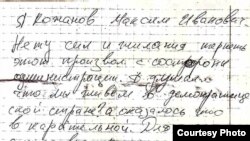 Я Кожанов Максим Иванович.
Нету сил и желания терпеть
этот произвол с состороны
администрации. Я думал
что мы живём в демократиче
ской стране? а оказалось что
в карательной. Для
Courtesy Photo